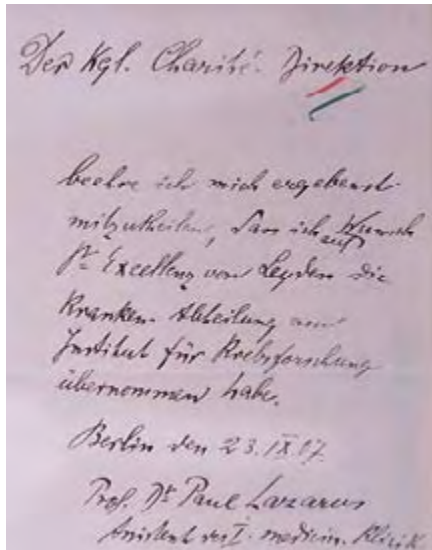 Der Kgl. Charité-Direktion
beehre ich mich ergebenst
mitzutheilen, dass ich auf Wunsch
Sr. Excellenz von Leyden die
Kranken-Abteilung am
Institut für Krebsforschung
übernommen habe.
Berlin den 23. IX. 07.
Prof. Dr Paul Lazarus
Assistent der I. medicin. Klinik.